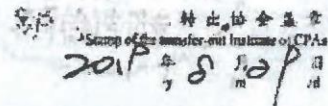 转出协会盖章
Stamp of the transfer-out Institute of CPAs
2019 年 8 月 29 日
y m /d